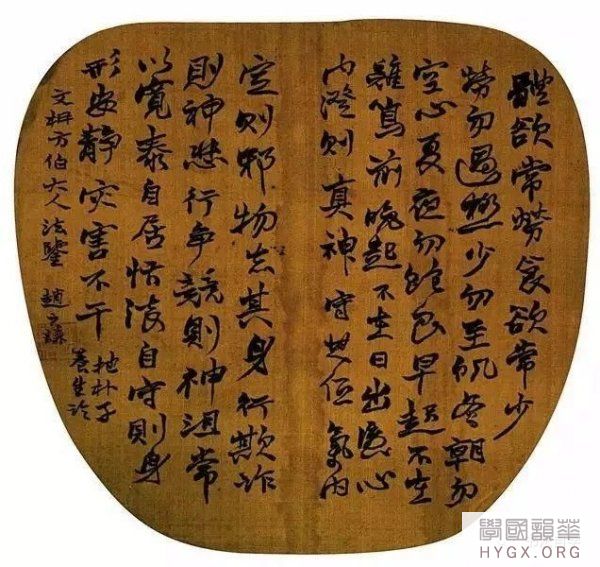 體欲常勞食欲常少
勞勿過極少勿至飢冬朝勿
空心夏夜勿飽食早起不在
雞鳴前晚起不在日出後心
內澄則真神守其位氣內
定則邪物去其身行欺詐
則神悲行爭競則神沮常
以寬泰自居恬淡自守則身
形安靜灾害不干
抱朴子
養生論
文方伯大人法鑒 趙之琛
學國韻華
HYGX.ORG